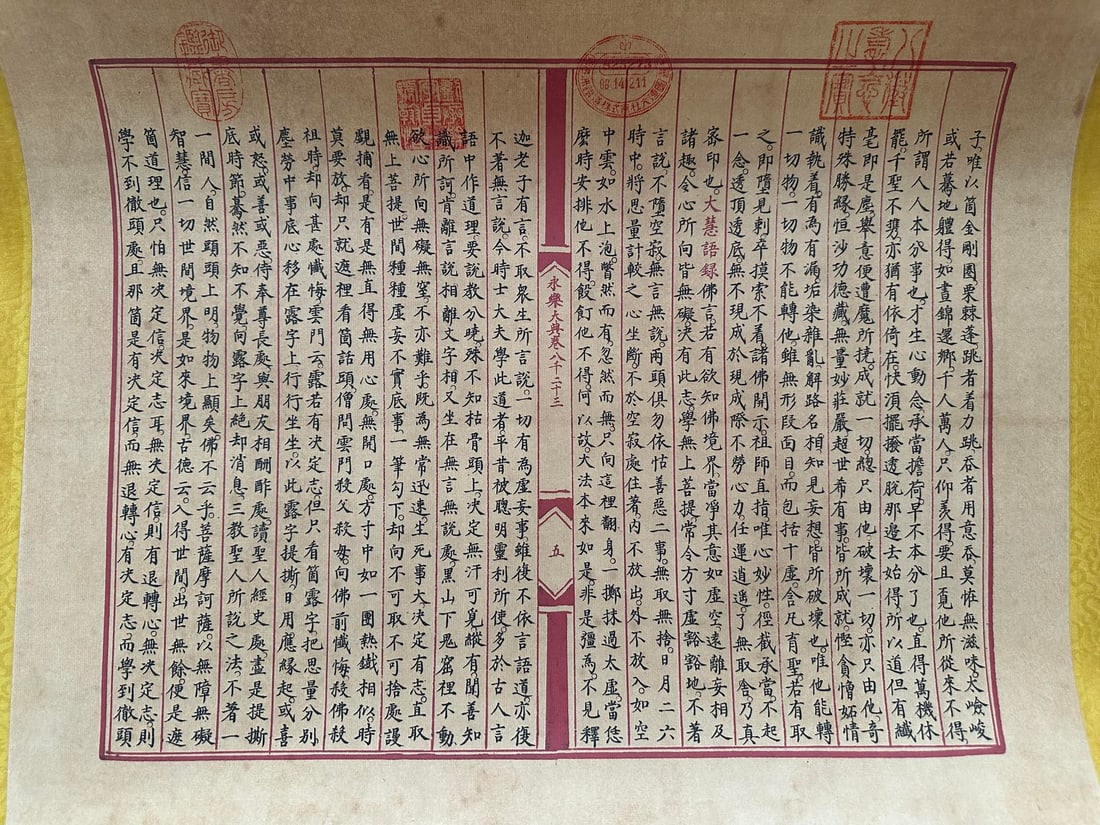 子唯以箇金剛圈栗棘蓬跳者着力跳吞者用意吞莫惟無滋味太嶮峻
或若驀地體得如晝錦還鄉千人萬人只仰羨得要且覓他所從來不得
所謂人人本分事也才生心動念承當擔荷早不本分了也直得萬機休
罷千聖不攜亦猶有依倚在快須擺撥透脫那邊去始得所以道但有纖
毫即是塵舉意便遭魔所撓成就一切總只由他破壞一切亦只由他奇
特殊勝緣恒沙功德藏無量妙莊嚴超世希有事皆所成就慳貪憎妬情
識執着有為有漏垢染雜亂解路名相知見妄想皆所破壞也唯他能轉
一切物一切物不能轉他雖無形段面目而包括十虛含凡育聖若有取
之即墮見刺卒摸索不着諸佛開示祖師直指唯心妙性徑截承當不起
一念透頂透底無不現成於現成際不勞心力任運逍遙了無取舍乃真
密印也大慧語錄佛言若有欲知佛境界當淨其意如虛空遠離妄相及
諸趣令心所向皆無礙決有此志學無上菩提常令方寸虛豁豁地不著
言說不墮空寂無言無說兩頭俱勿依怙善惡二事無取無捨日月二六
時中將思量計較之心坐斷不於空寂處住著內不放出外不放入如空
中雲如水上泡瞥然而有忽然而無只向這裡翻身一擲抹過太虛當恁
麼時安排他不得餖飣他不得何以故大法本來如是非是彊為不見釋
永樂大典卷八千二十三
五
迦老子有言不取眾生所言說一切有為虛妄事雖復不依言語道亦復
不著無言說今時士大夫學此道者平昔被聰明靈利所使多於古人言
語中作道理要說教分曉殊不知枯骨頭上決定無汗可覓縱有聞善知
識所訶肯離言說相離文字相又坐在無言無說處黑山下鬼窟裡不動
欲心所向無礙無窒不亦難乎既為無常迅速生死事大決定有志直取
無上菩提世間種種虛妄不實底事一筆勾下却向不可取不可捨處謾
覷捕看是有是無直得無用心處無開口處方寸中如一團熱鐵相似時
莫要放却只就這裡看箇話頭僧問雲門殺父殺母向佛前懺悔殺佛殺
祖時却向甚處懺悔雲門云露若有決定志但只看箇露字把思量分別
塵勞中事底心移在露字上行行坐坐以此露字提撕日用應緣起或喜
或怒或善或惡侍奉尊長處與朋友相酬酢處讀聖人經史處盡是提撕
底時節驀然不知不覺向露字上絕却消息三教聖人所說之法不著一
一問人自然頭頭上明物物上顯矣佛不云乎菩薩摩訶薩以無障無礙
智慧信一切世間境界是如來境界古德云入得世間出世無餘便是遮
箇道理也只怕無決定信決定志耳無決定信則有退轉心無決定志則
學不到徹頭處且那箇是有決定信而無退轉心有決定志而學到徹頭